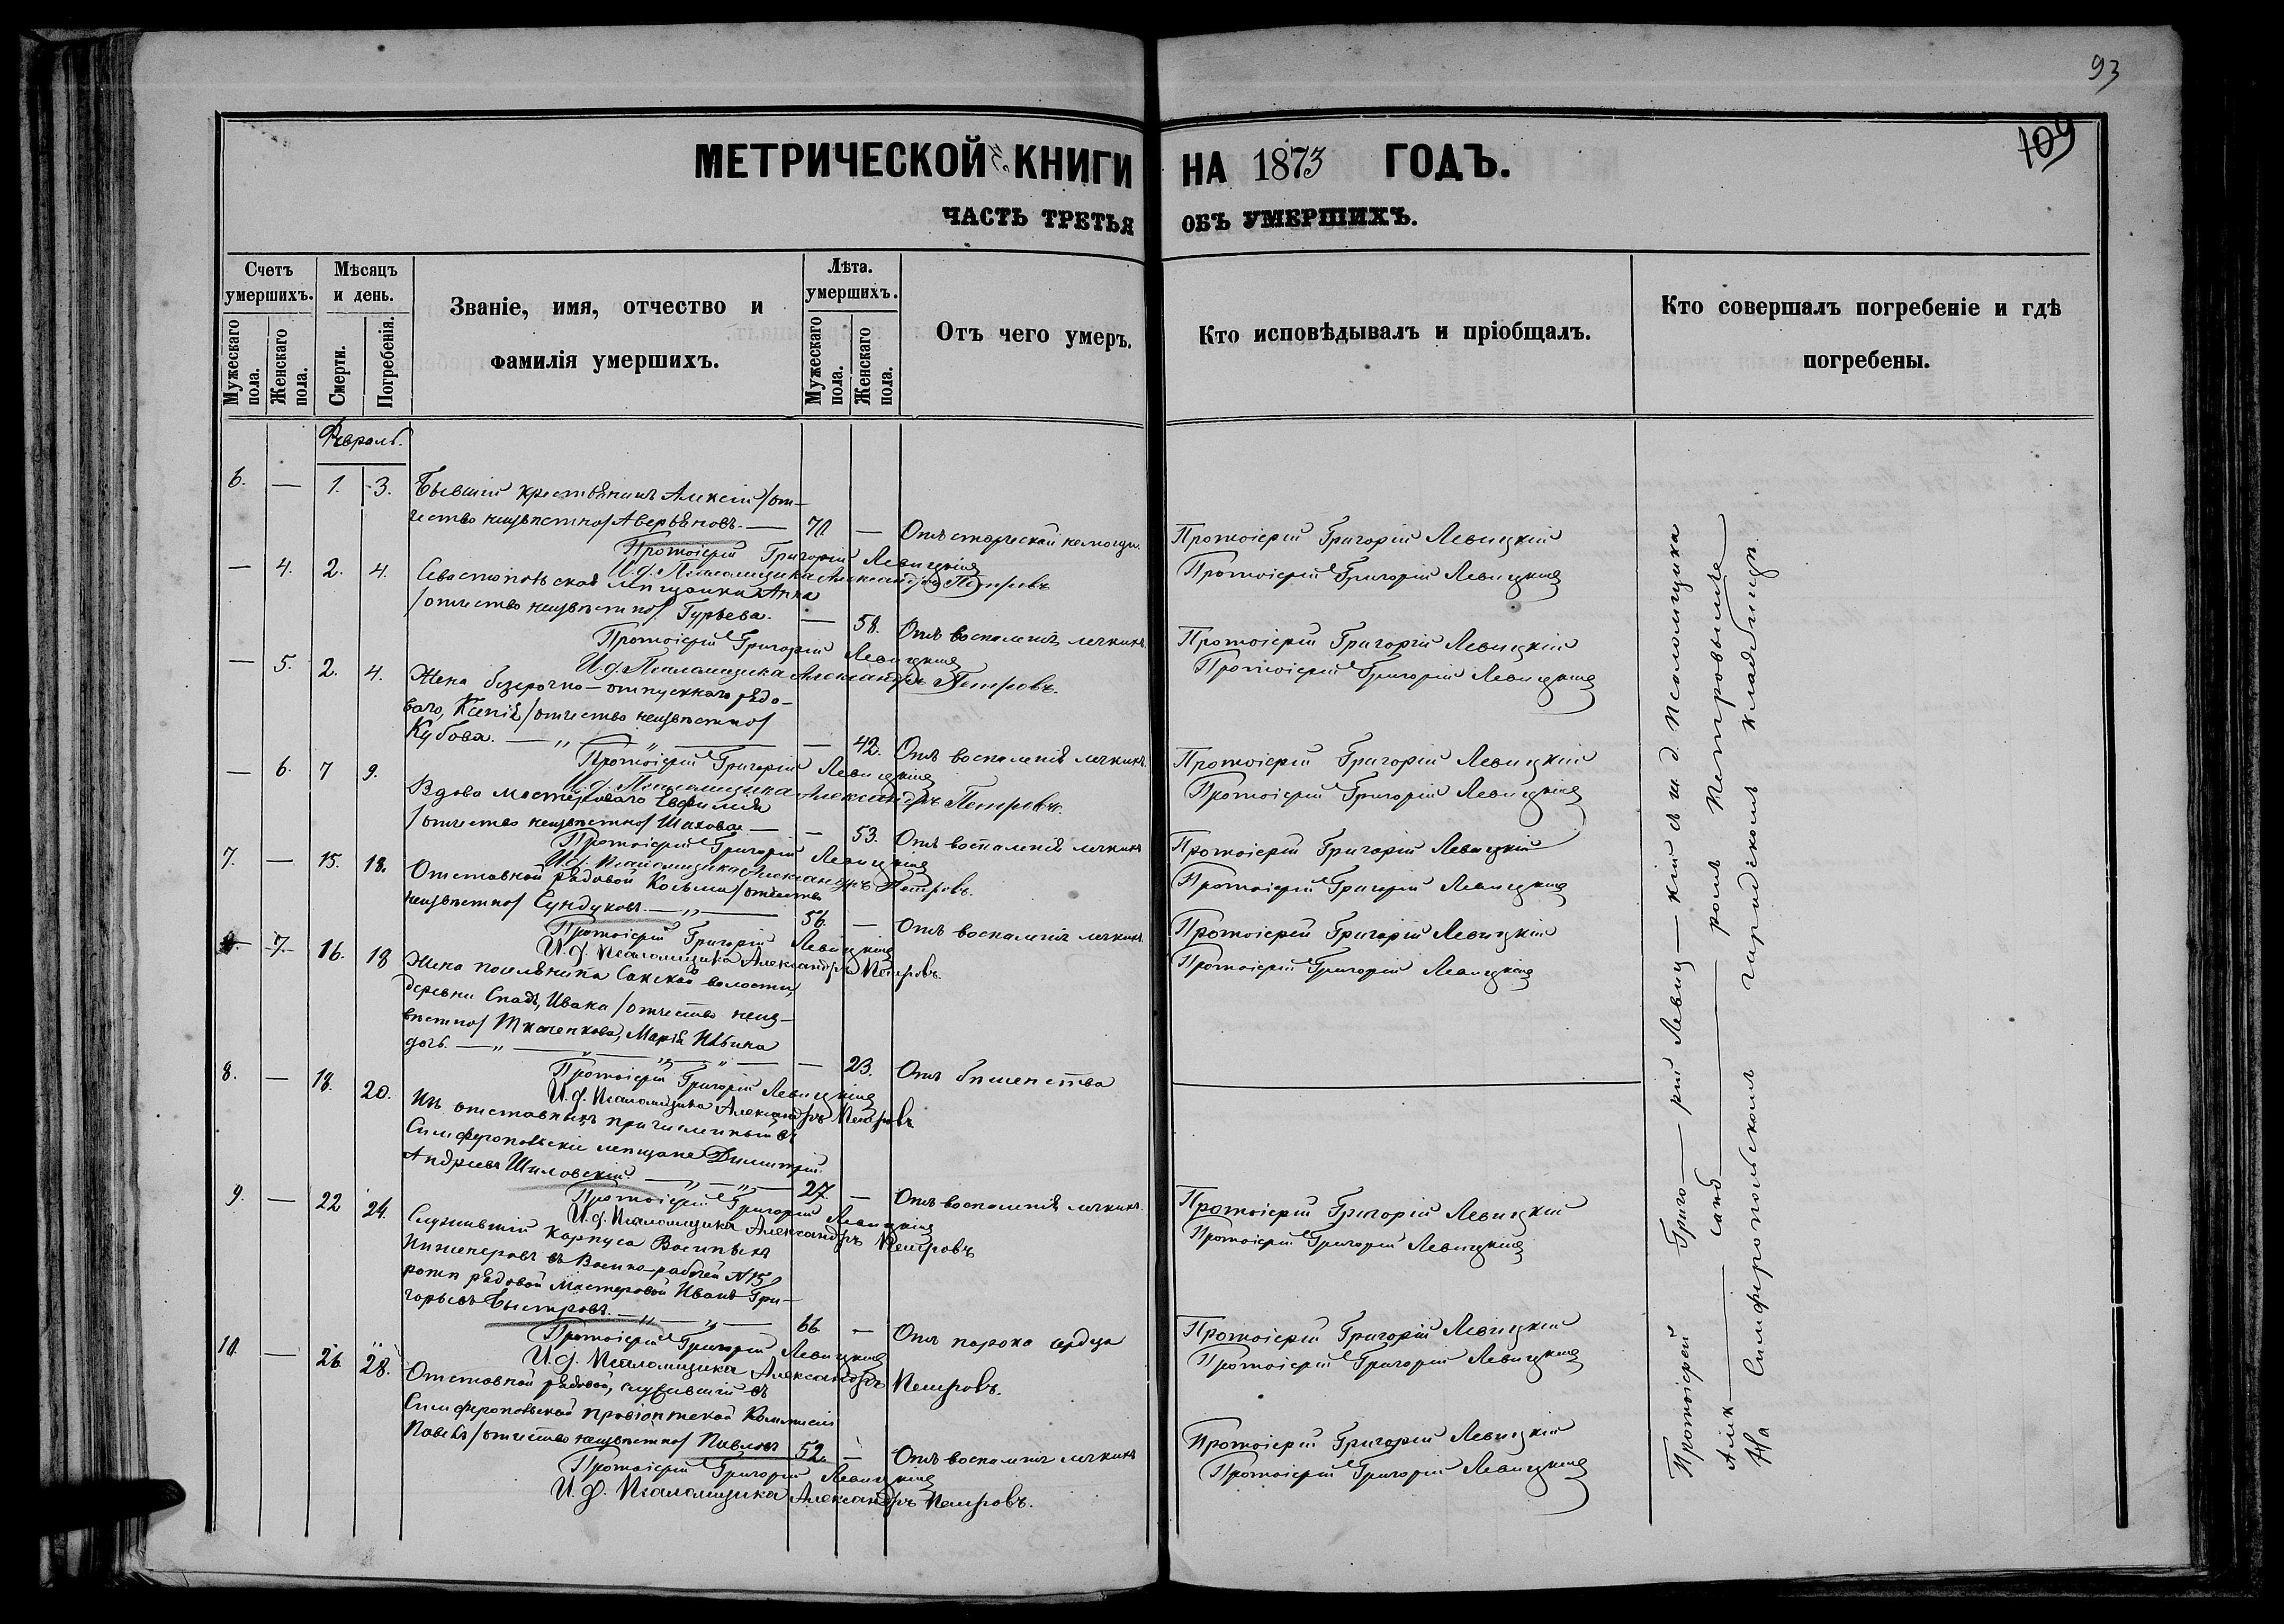 93
109
МЕТРИЧЕСКОЙ КНИГИ НА 1873 ГОДЪ.
ЧАСТЬ ТРЕТЬЯ ОБЪ УМЕРШИХЪ.
Счетъ умершихъ.
Мужескаго пола.
Женскаго пола.
Мѣсяцъ и день.
Смерти.
Погребенія.
Званіе, имя, отчество и
фамилія умершихъ.
Лѣта. умершихъ.
Мужескаго пола.
Женскаго пола.
Отъ чего умеръ.
Кто исповѣдывалъ и пріобщалъ.
Кто совершалъ погребеніе и гдѣ
погребены.
Февраль.
6. — 1. 3. Бывшій крестьянинъ Алексій /от-
чество неизвѣстно/ Аверьяновъ. — 70 — Отъ старческой немощи. Протоіерей Григорій Левицкій
Протоіерей Григорій Левицкій Протоіерей Григорій Левицкій
И.д. Псаломщика Александръ Петровъ
— 4. 2. 4. Севастопольская мѣщанка Анна
/отчество неизвѣстно/ Гурьева. — 58. Отъ воспаленія легкихъ. Протоіерей Григорій Левицкій
Протоіерей Григорій Левицкій Протоіерей Григорій Левицкій
И.д. Псаломщика Александръ Петровъ.
— 5. 2. 4. Жена безсрочно-отпускнаго рядо-
ваго, Ксенія /отчество неизвѣстно/
Кубова. — „ — „ — — 42. Отъ воспаленія легкихъ. Протоіерей Григорій Левицкій
Протоіерей Григорій Левицкій Протоіерей Григорій Левицкій
И.д. Псаломщика Александръ Петровъ.
— 6. 7 9. Вдова мастероваго Евфимія
/отчество неизвѣстно/ Шахова — — 53. Отъ воспаленія легкихъ Протоіерей Григорій Левицкій
Протоіерей Григорій Левицкій Протоіерей Григорій Левицкій
И.д. Псаломщика Александръ Петровъ.
7. — 15. 18. Отставной рядовой Косьма /отчество
неизвѣстно/ Сундуковъ. — „ — 56. — Отъ воспаленія легкихъ. Протоіерей Григорій Левицкій
Протоіерей Григорій Левицкій Протоіерей Григорій Левицкій
И.д. Псаломщика Александръ Петровъ.
— 7. 16. 18 Жена поселянина Сакской волости,
деревни Ивана /отчество неиз-
вѣстно/ Марія
дочь. — „ — „ — „ — „ — — 23. Отъ бѣшенства
Протоіерей Григорій Левицкій
И.д. Псаломщика Александръ Петровъ
8. — 18. 20. Изъ отставныхъ причисленный въ
Симферопольскіе мѣщане Димитрій
Андреевъ Шиловскій. — „ — „ — 27. — Отъ воспаленія легкихъ. Протоіерей Григорій Левицкій
Протоіерей Григорій Левицкій Протоіерей Григорій Левицкій
И.д. Псаломщика Александръ Петровъ
9. — 22 24. Служившій Корпуса Военныхъ
Инженеровъ въ Военно-рабочей №15
ротѣ рядовой мастеровой Иванъ Гри-
горьевъ Быстровъ. — „ — „ — 66 — Отъ порока сердца Протоіерей Григорій Левицкій
Протоіерей Григорій Левицкій Протоіерей Григорій Левицкій
И.д. Псаломщика Александръ Петровъ.
10. — 26 28. Отставной рядовой, служившій въ
Симферопольской провіантской Коммисіи
Павелъ /отчество неизвѣстно/ Павловъ 52. — Отъ воспаленія легкихъ Протоіерей Григорій Левицкій
Протоіерей Григорій Левицкій Протоіерей Григорій Левицкій
И.д. Псаломщика Александръ Петровъ.
Протоіерей Григо — рій Левиц — кій съ и. д. псаломщика
Алек — санд — ромъ Петровымъ —
На Симферопольскомъ городскомъ кладбищѣ.